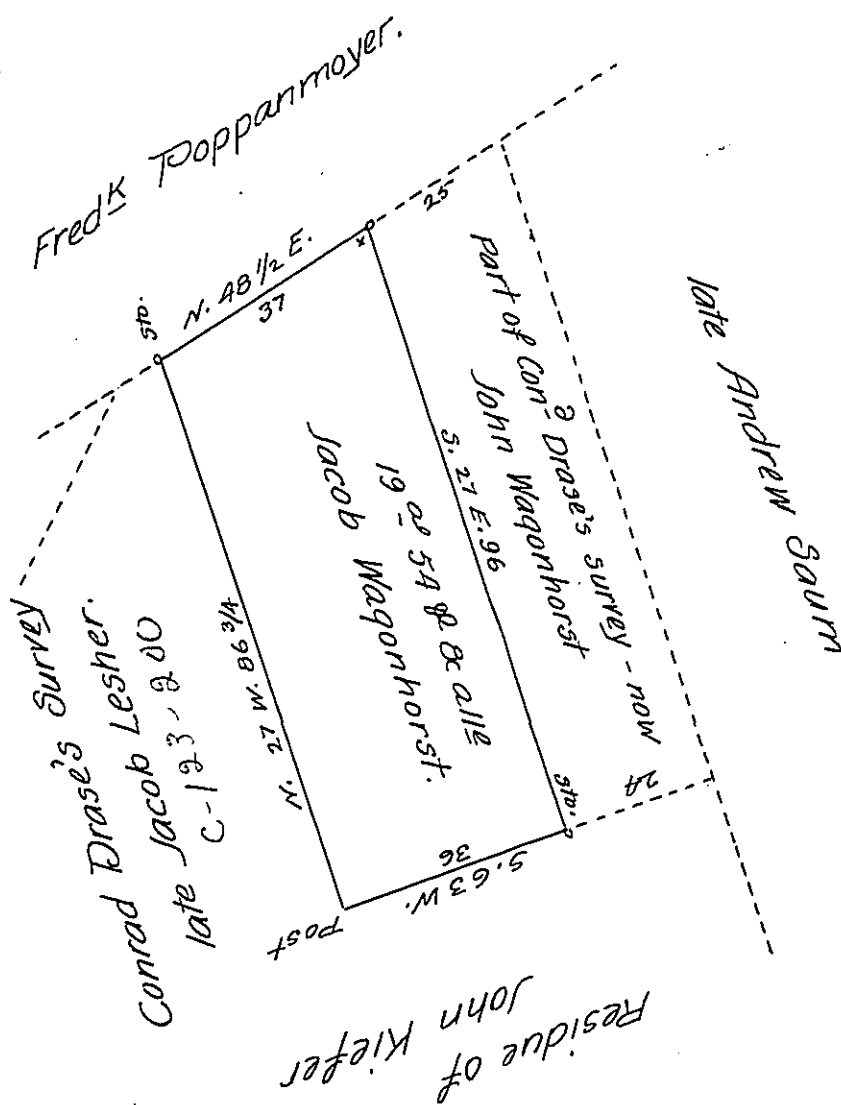 Fredᴷ Poppanmoyer.
Sto.
N. 48 1/2 E.
37
x
25
late Andrew Saum
part of Con-d Drase's survey - now
John Wagonhorst
S. 27 E. 96
19 a- 54 p & alle
Jacob Wagonhorst.
N. 27 W. 86 3/4
Conrad Drase's Survey
late Jacob Lesher.
C-123-200
Sto.
24
36
S. 63 W.
Post
Residue of
John Kiefer